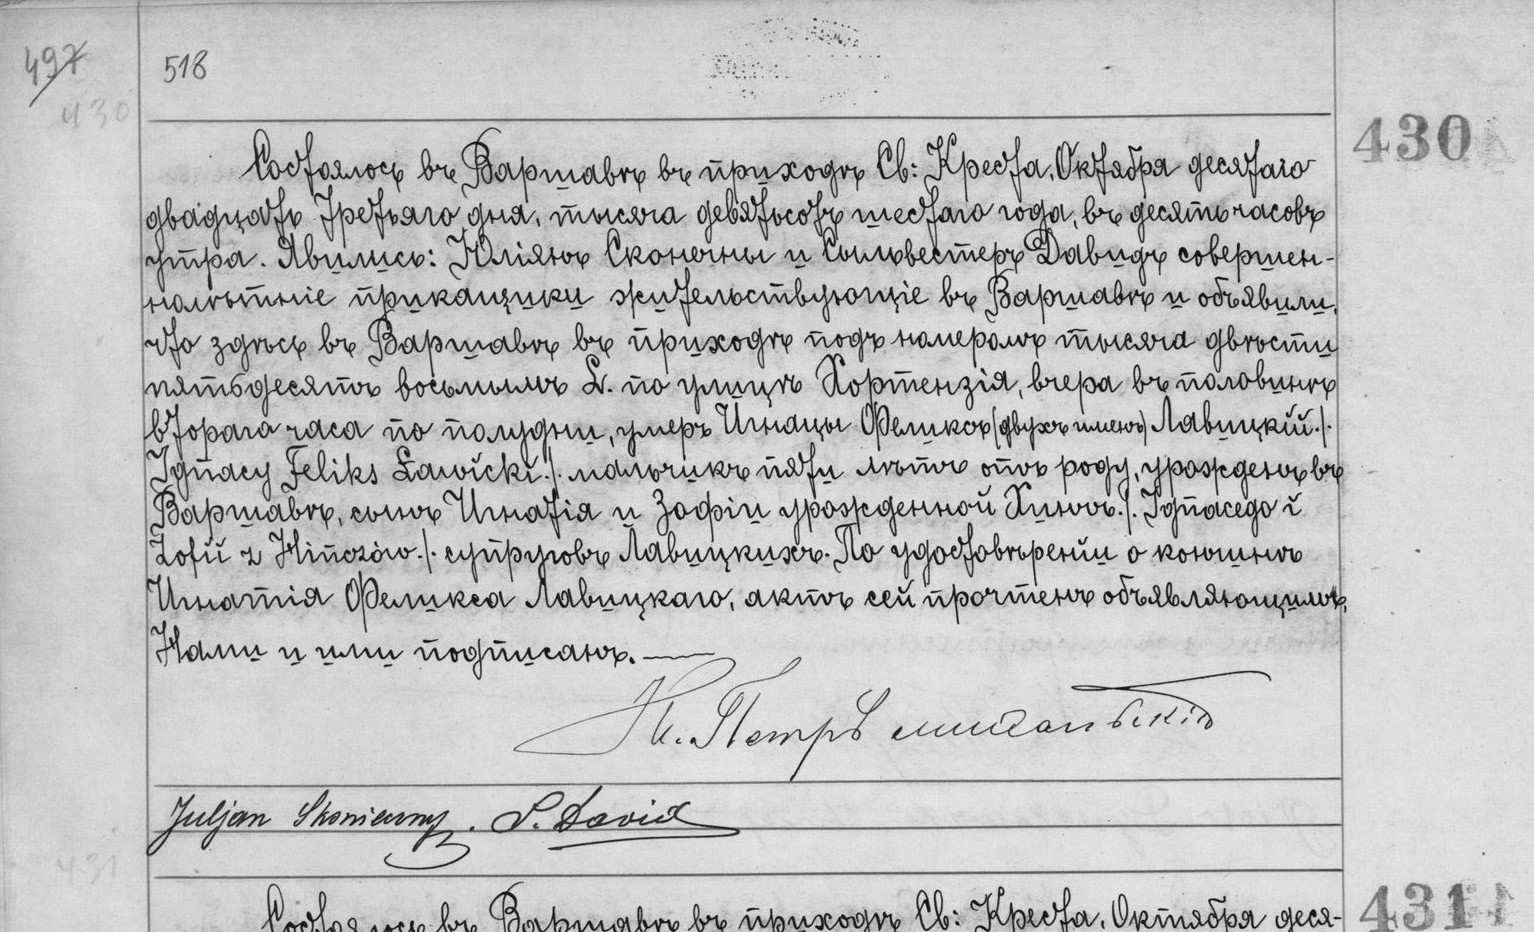 497
430
518
430
Состоялось въ Варшавѣ въ приходѣ Св: Креста, Октября десятаго
двадцать третьяго дня, тысяча девятьсотъ шестаго года, въ десять часовъ
утра. Явились: Юліянъ Сконечны и Сыльвестеръ Давидъ совершен-
нолѣтніе прикащики жительствующіе въ Варшавѣ и объявили,
что здѣсь въ Варшавѣ въ приходѣ подъ номеромъ тысяча двѣсти
пятьдесятъ восьмымъ L. по улицѣ Хортензія, вчера въ половинѣ
втораго часа по полудни, умеръ Игнацы Феликсъ (двухъ именъ) Лавицкій ./.
Ignacy Feliks Ławicki ./. мальчикъ пяти лѣтъ отъ роду, урожденъ въ
Варшавѣ, сынъ Игнатія и Зофіи урожденной Хинчъ ./. Ignacego i
Zofii z Hinczów ./. супруговъ Лавицкихъ. По удостовѣреніи о кончинѣ
Игнатія Феликса Лавицкаго, актъ сей прочтенъ объявляющимъ,
Нами и ими подписанъ.
Кс. Петръ
Juljan Skonieczny. S. David
431
431
Состоялось въ Варшавѣ въ приходѣ Св: Креста, Октября деся-